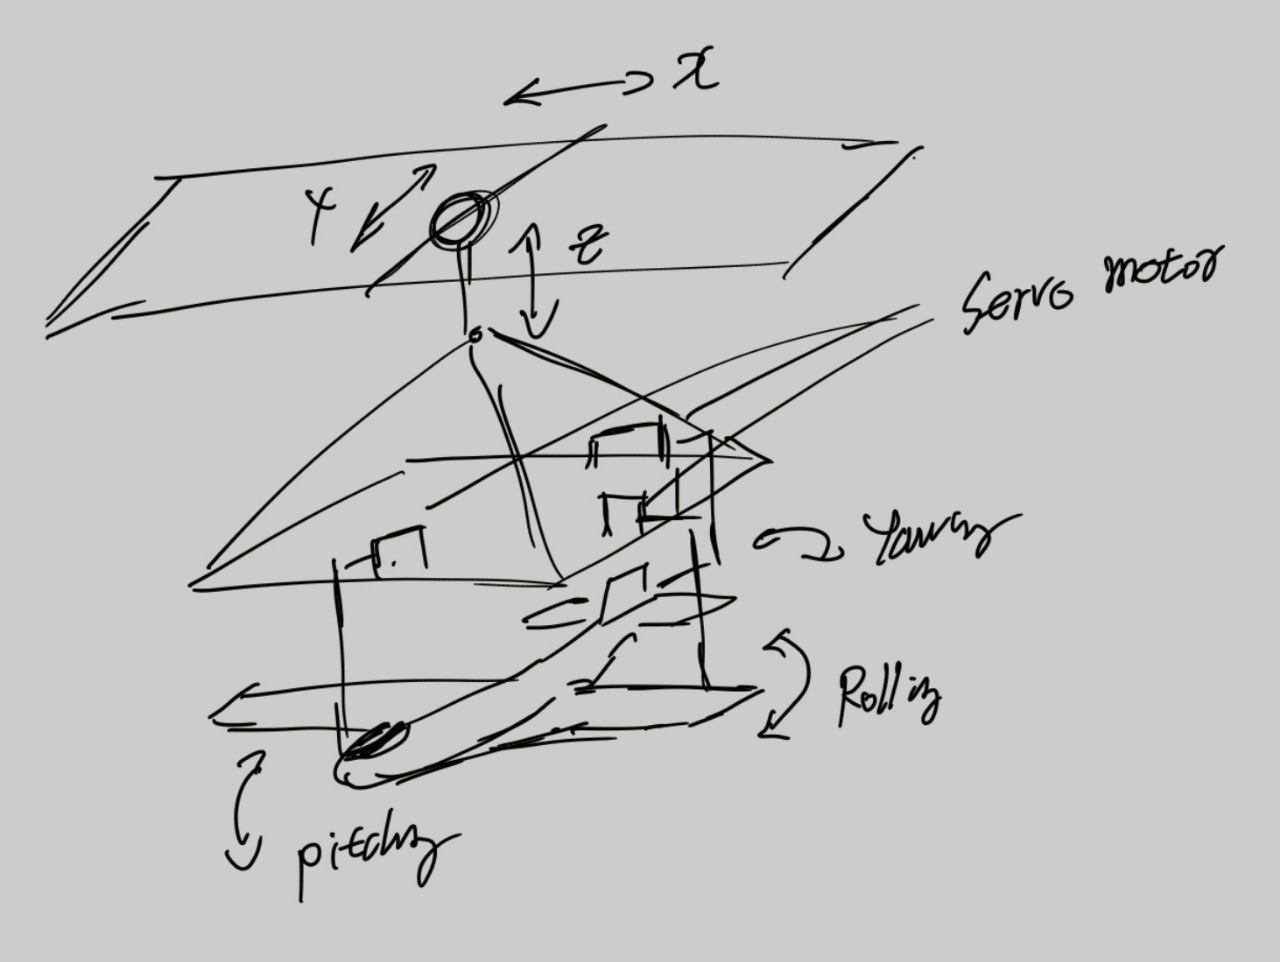 X
Y
Z
Servo motor
Yawing
Rolling
pitching